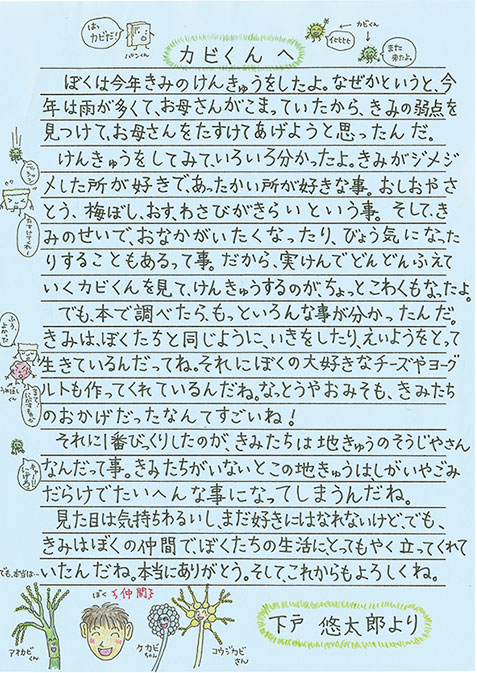 はっ、カビだ!
パンくん
カビくん
イヒヒヒヒ
また来たよ。
カビくんへ
ぼくは今年きみのけんきゅうをしたよ。なぜかというと、今
年は雨が多くて、お母さんがこまっていたから、きみの弱点を
見つけて、お母さんをたすけてあげようと思ったんだ。
けんきゅうをしてみて、いろいろ分かったよ。きみがジメジ
メした所が好きで、あったかい所が好きな事。おしおやさ
とう、梅ぼし、おす、わさびがきらいという事。そして、き
みのせいで、おなかがいたくなったり、びょう気になった
りすることもあるって事。だから、実けんでどんどんふえて
いくカビくんを見て、けんきゅうするのが、ちょっとこわくもなったよ。
でも、本で調べたら、もっといろんな事が分かったんだ。
きみは、ぼくたちと同じように、いきをしたり、えいようをとって
生きているんだってね。それにぼくの大好きなチーズやヨーグ
ルトも作ってくれているんだね。なっとうやおみそも、きみたち
のおかげだったなんてすごいね!
それに1番びっくりしたのが、きみたちは地きゅうのそうじやさん
なんだって事。きみたちがいないとこの地きゅうは、しがいやごみ
だらけでたいへんな事になってしまうんだね。
見た目は気持ちわるいし、まだ好きにはなれないけど、でも、
きみはぼくの仲間で、ぼくたちの生活にとってもやく立ってくれて
いたんだね。本当にありがとう。そして、これからもよろしくね。
たすけてくれ
ふう、よかった
うめぼしくん
でも、本当は…
ぼく
仲間
アオカビくん
ケカビちゃん
コウジカビさん
下戸 悠太郎より